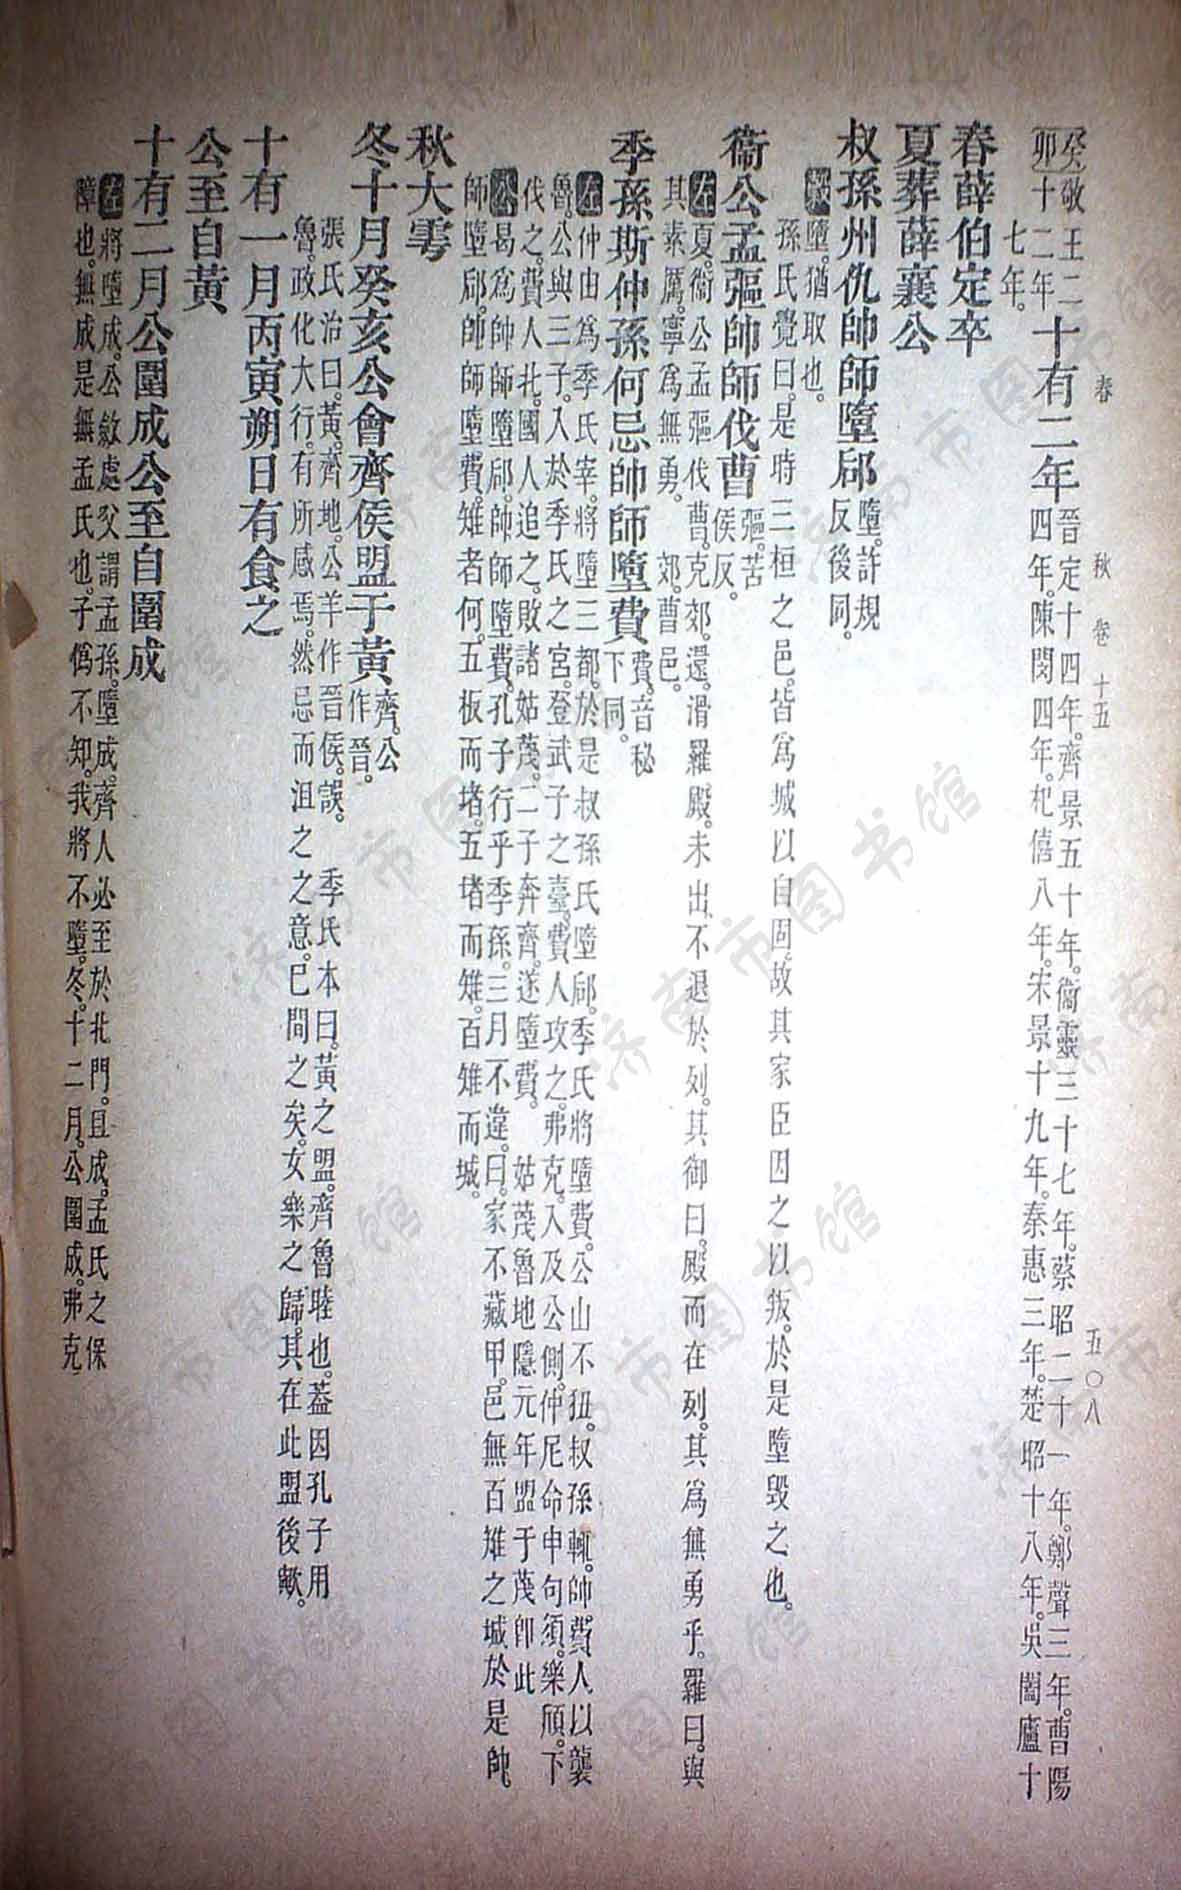 春秋 卷十五 五〇八
癸卯 敬王二十二年十有二年 晉定十四年。齊景五十年。衞靈三十七年。蔡昭二十一年。鄭聲三年。曹陽
四年。陳閔四年。杞僖八年。宋景十九年。秦惠三年。楚昭十八年。吳闔廬十
七年。
春薛伯定卒
夏葬薛襄公
叔孫州仇帥師墮郈 墮。許規反。後同。
墮。猶取也。
孫氏覺曰。是時三桓之邑。皆爲城以自固。故其家臣因之以叛。於是墮毀之也。
衞公孟彄帥師伐曹 彄。苦侯反。
左夏。衞公孟彄伐曹。克郊。還。滑羅殿。未出。不退於列。其御曰。殿而在列。其爲無勇乎。羅曰。與
其素厲。寧爲無勇。 郊。曹邑。
季孫斯仲孫何忌帥師墮費 費。音秘。下同。
左仲由爲季氏宰。將墮三都。於是叔孫氏墮郈。季氏將墮費。公山不狃。叔孫輒。帥費人以襲
魯。公與三子。入於季氏之宮。登武子之臺。費人攻之。弗克。入及公側。仲尼命申句須。樂頎。下
伐之。費人北。國人追之。敗諸姑蔑。二子奔齊。遂墮費。 姑蔑魯地隱元年盟于蔑卽此
公曷爲帥師墮郈。帥師墮費。孔子行乎季孫。三月不違。曰。家不藏甲。邑無百雉之城。於是帥
師墮郈。帥師墮費。雉者何。五板而堵。五堵而雉。百雉而城。
秋大雩
冬十月癸亥公會齊侯盟于黃 齊。公作晉。
張氏治曰。黃。齊地。公羊作晉侯。誤。 季氏本曰。黃之盟。齊魯睦也。蓋因孔子用
魯。政化大行。有所感焉。然忌而沮之之意。已間之矣。女樂之歸。其在此盟後歟。
十有一月丙寅朔日有食之
公至自黃
十有二月公圍成公至自圍成
左將墮成。公斂處父謂孟孫。墮成。齊人必至於北門。且成。孟氏之保
障也。無成是無孟氏也。子僞不知。我將不墮。冬。十二月。公圍成。弗克